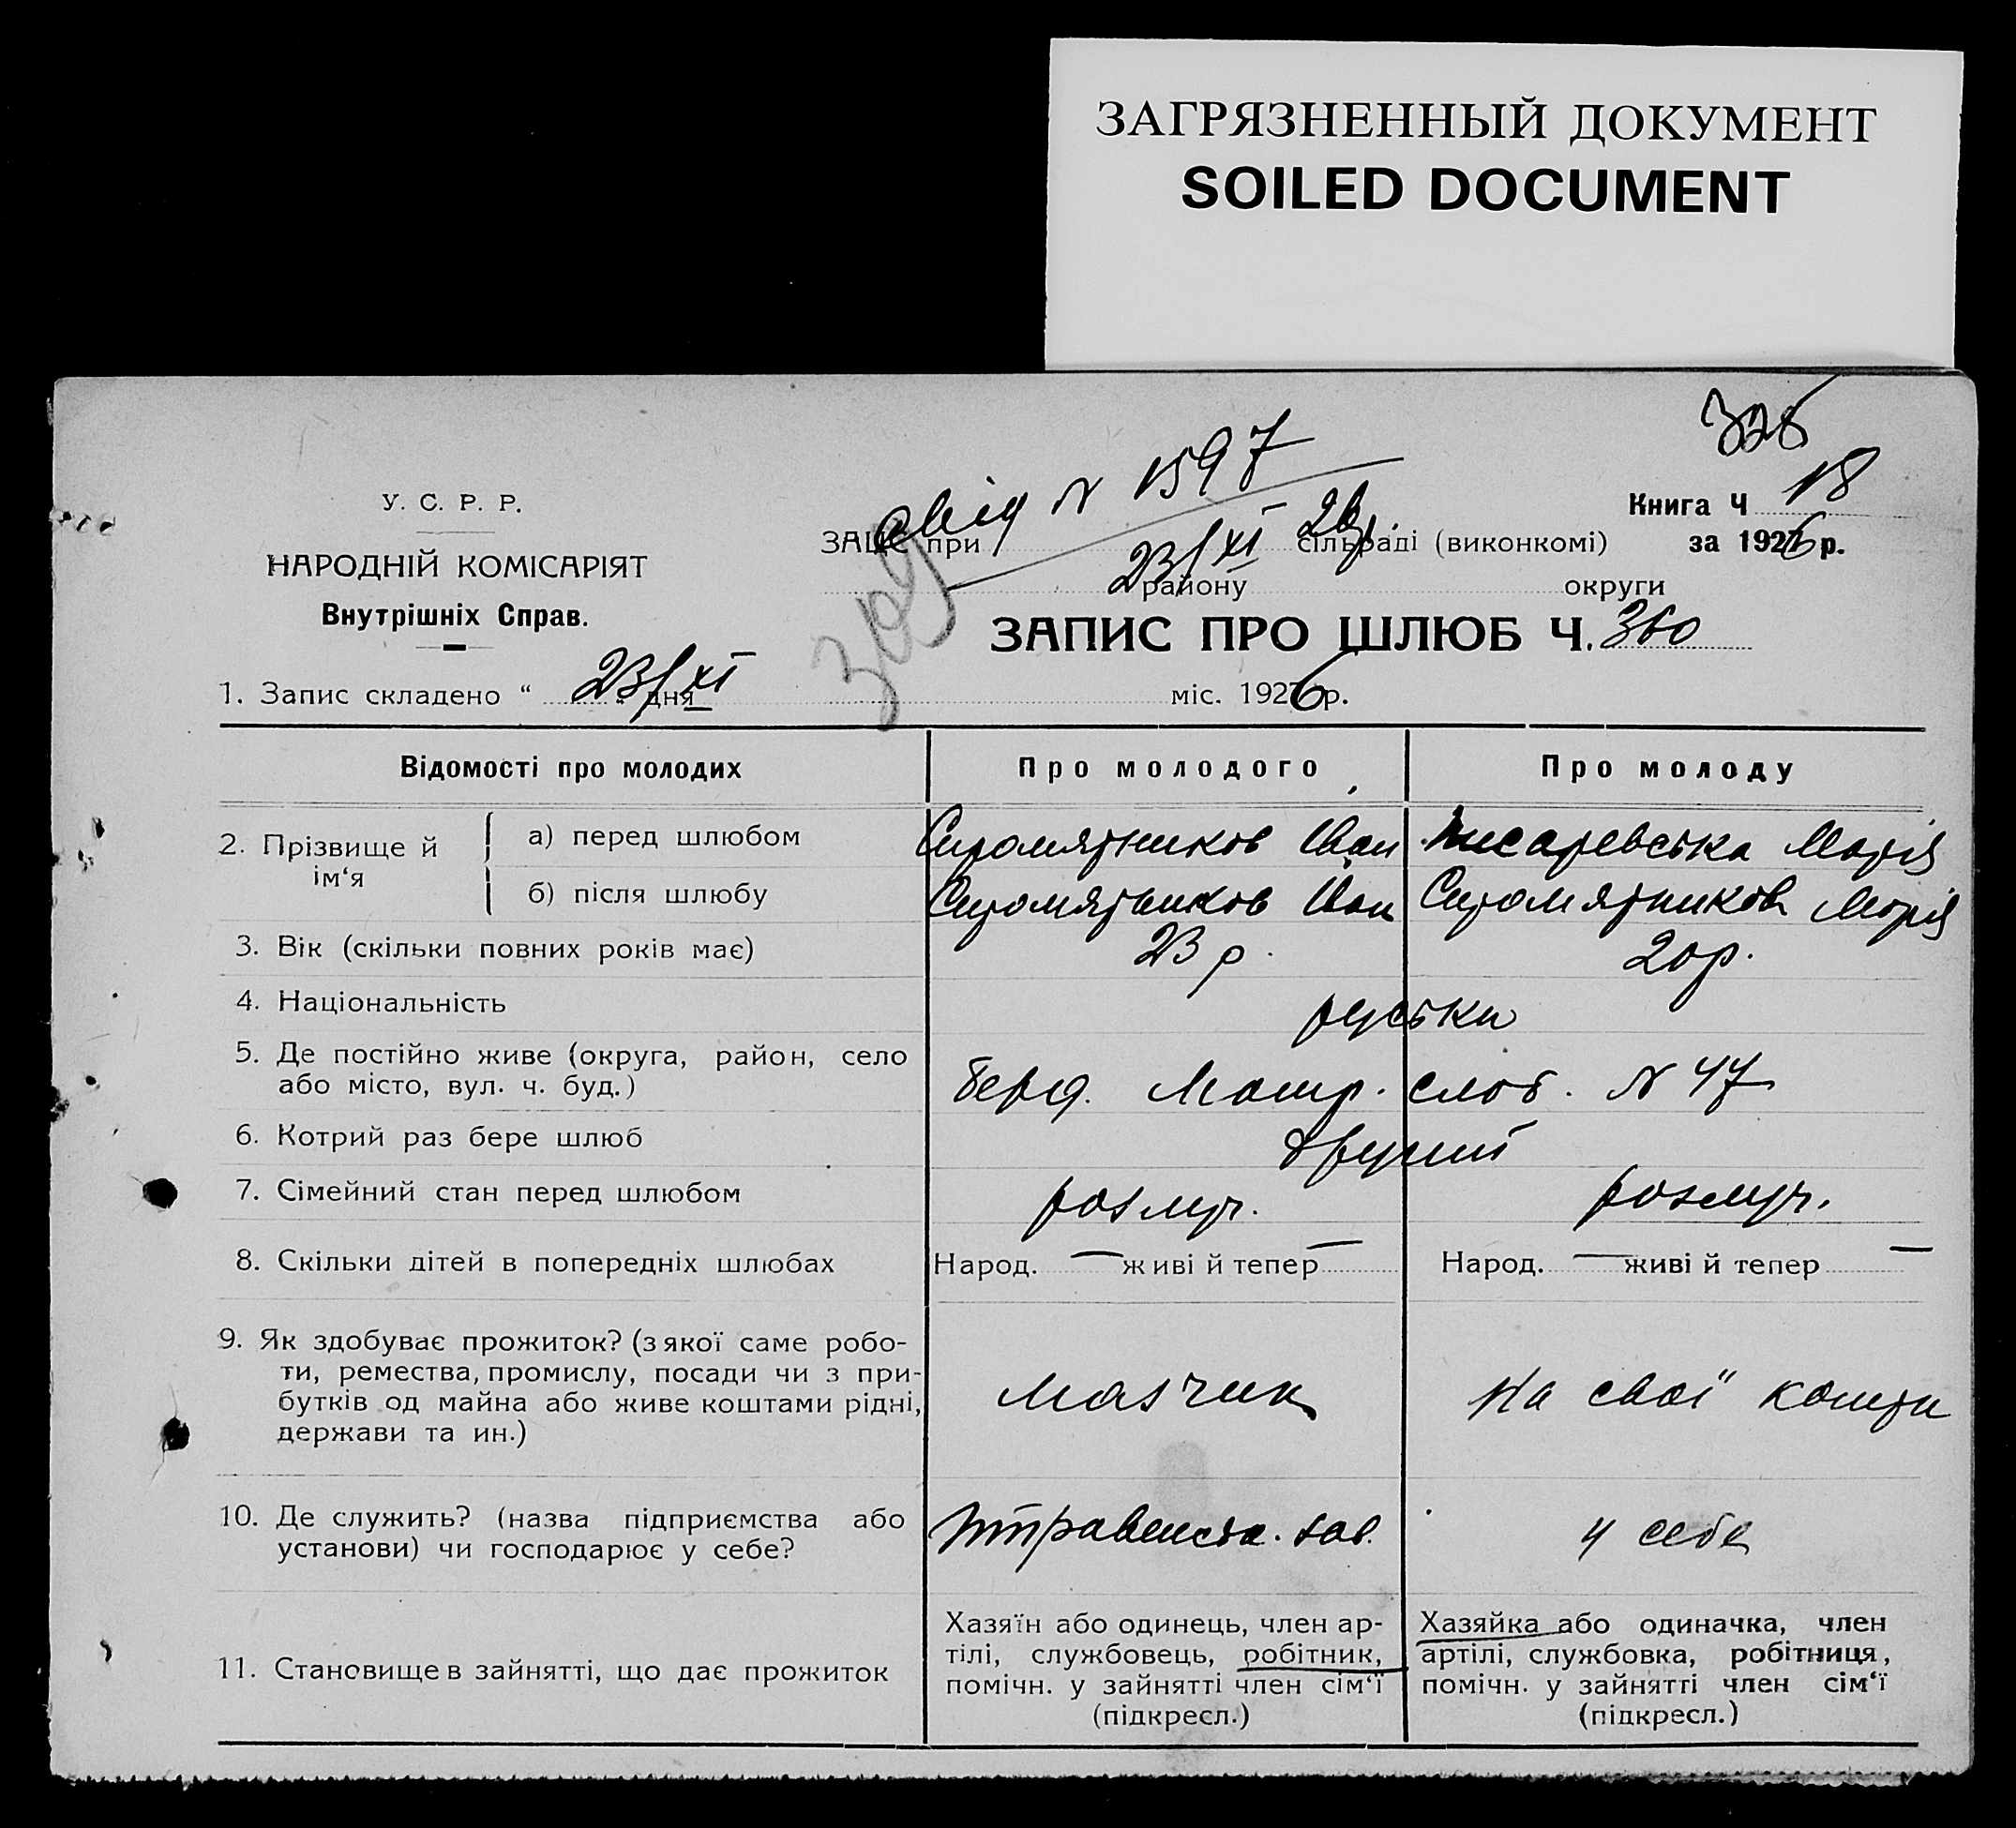 ЗАГРЯЗНЕННЫЙ ДОКУМЕНТ
SOILED DOCUMENT
У. С. Р. Р.
НАРОДНІЙ КОМІСАРІЯТ
Внутрішніх Справ.
свід N 1597
23/XI 26 р.
Книга Ч 18
за 1926 р.
ЗАЦС при сільраді (виконкомі)
району округи
309
ЗАПИС ПРО ШЛЮБ Ч. 360
1. Запис складено “ 23/XI дня міс. 1926 р.
Відомості про молодих Про молодого Про молоду
2. Прізвище й ім‘я
а) перед шлюбом Сиромятников Іван Писаревська Марія
б) після шлюбу Сиромятников Іван Сиромятникова Марія
3. Вік (скільки повних років має) 23 р. 20 р.
4. Національність руськи
5. Де постійно живе (округа, район, село
або місто, вул. ч. буд.) Берд. слоб. N 47
6. Котрий раз бере шлюб другий
7. Сімейний стан перед шлюбом розлуч. розлуч.
8. Скільки дітей в попередніх шлюбах Народ. — живі й тепер — Народ. — живі й тепер —
9. Як здобуває прожиток? (з якої саме робо-
ти, ремества, промислу, посади чи з при-
бутків од майна або живе коштами рідні,
держави та ин.)
мазчик На свої кошти
10. Де служить? (назва підприємства або
установи) чи господарює у себе?
зав. у себе
11. Становище в зайнятті, що дає прожиток
Хазяїн або одинець, член ар-
тілі, службовець, робітник,
помічн. у зайнятті член сім‘ї
(підкресл.)
Хазяйка або одиначка, член
артілі, службовка, робітниця,
помічн. у зайнятті член сім‘ї
(підкресл.)